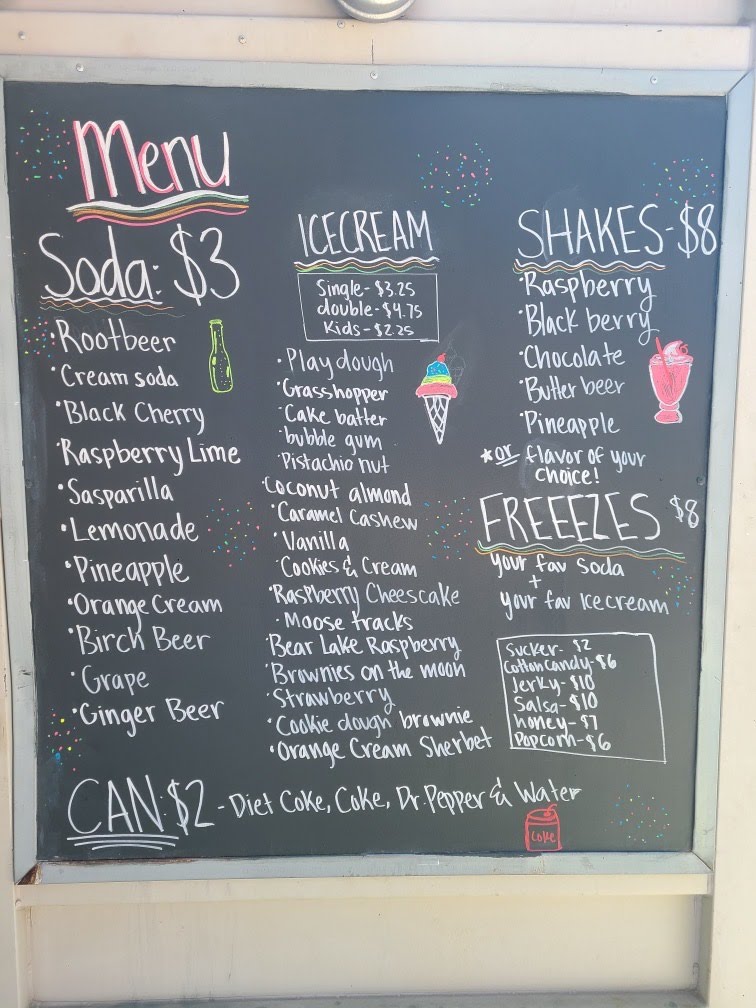 Menu
Soda: $3
·Rootbeer
·Cream soda
·Black Cherry
·Raspberry Lime
·Sasparilla
·Lemonade
·Pineapple
·Orange Cream
·Birch Beer
·Grape
·Ginger Beer
ICECREAM
Single- $3.25
double- $4.75
Kids- $2.25
·Play dough
·Grasshopper
·Cake batter
·bubble gum
·Pistachio nut
·Coconut almond
·Caramel Cashew
·Vanilla
·Cookies & Cream
·Raspberry Cheescake
·Moose tracks
·Bear Lake Raspberry
·Brownies on the moon
·Strawberry
·Cookie dough brownie
·Orange Cream Sherbet
SHAKES-$8
·Raspberry
·Black berry
·Chocolate
·Butter beer
·Pineapple
*or flavor of your
choice!
FREEEZES $8
your fav soda
+
your fav Icecream
Sucker- $2
Cotton candy-$6
Jerky-$10
Salsa-$10
honey-$7
Popcorn-$6
CAN:$2 - Diet Coke, Coke, Dr. Pepper & Water
Coke